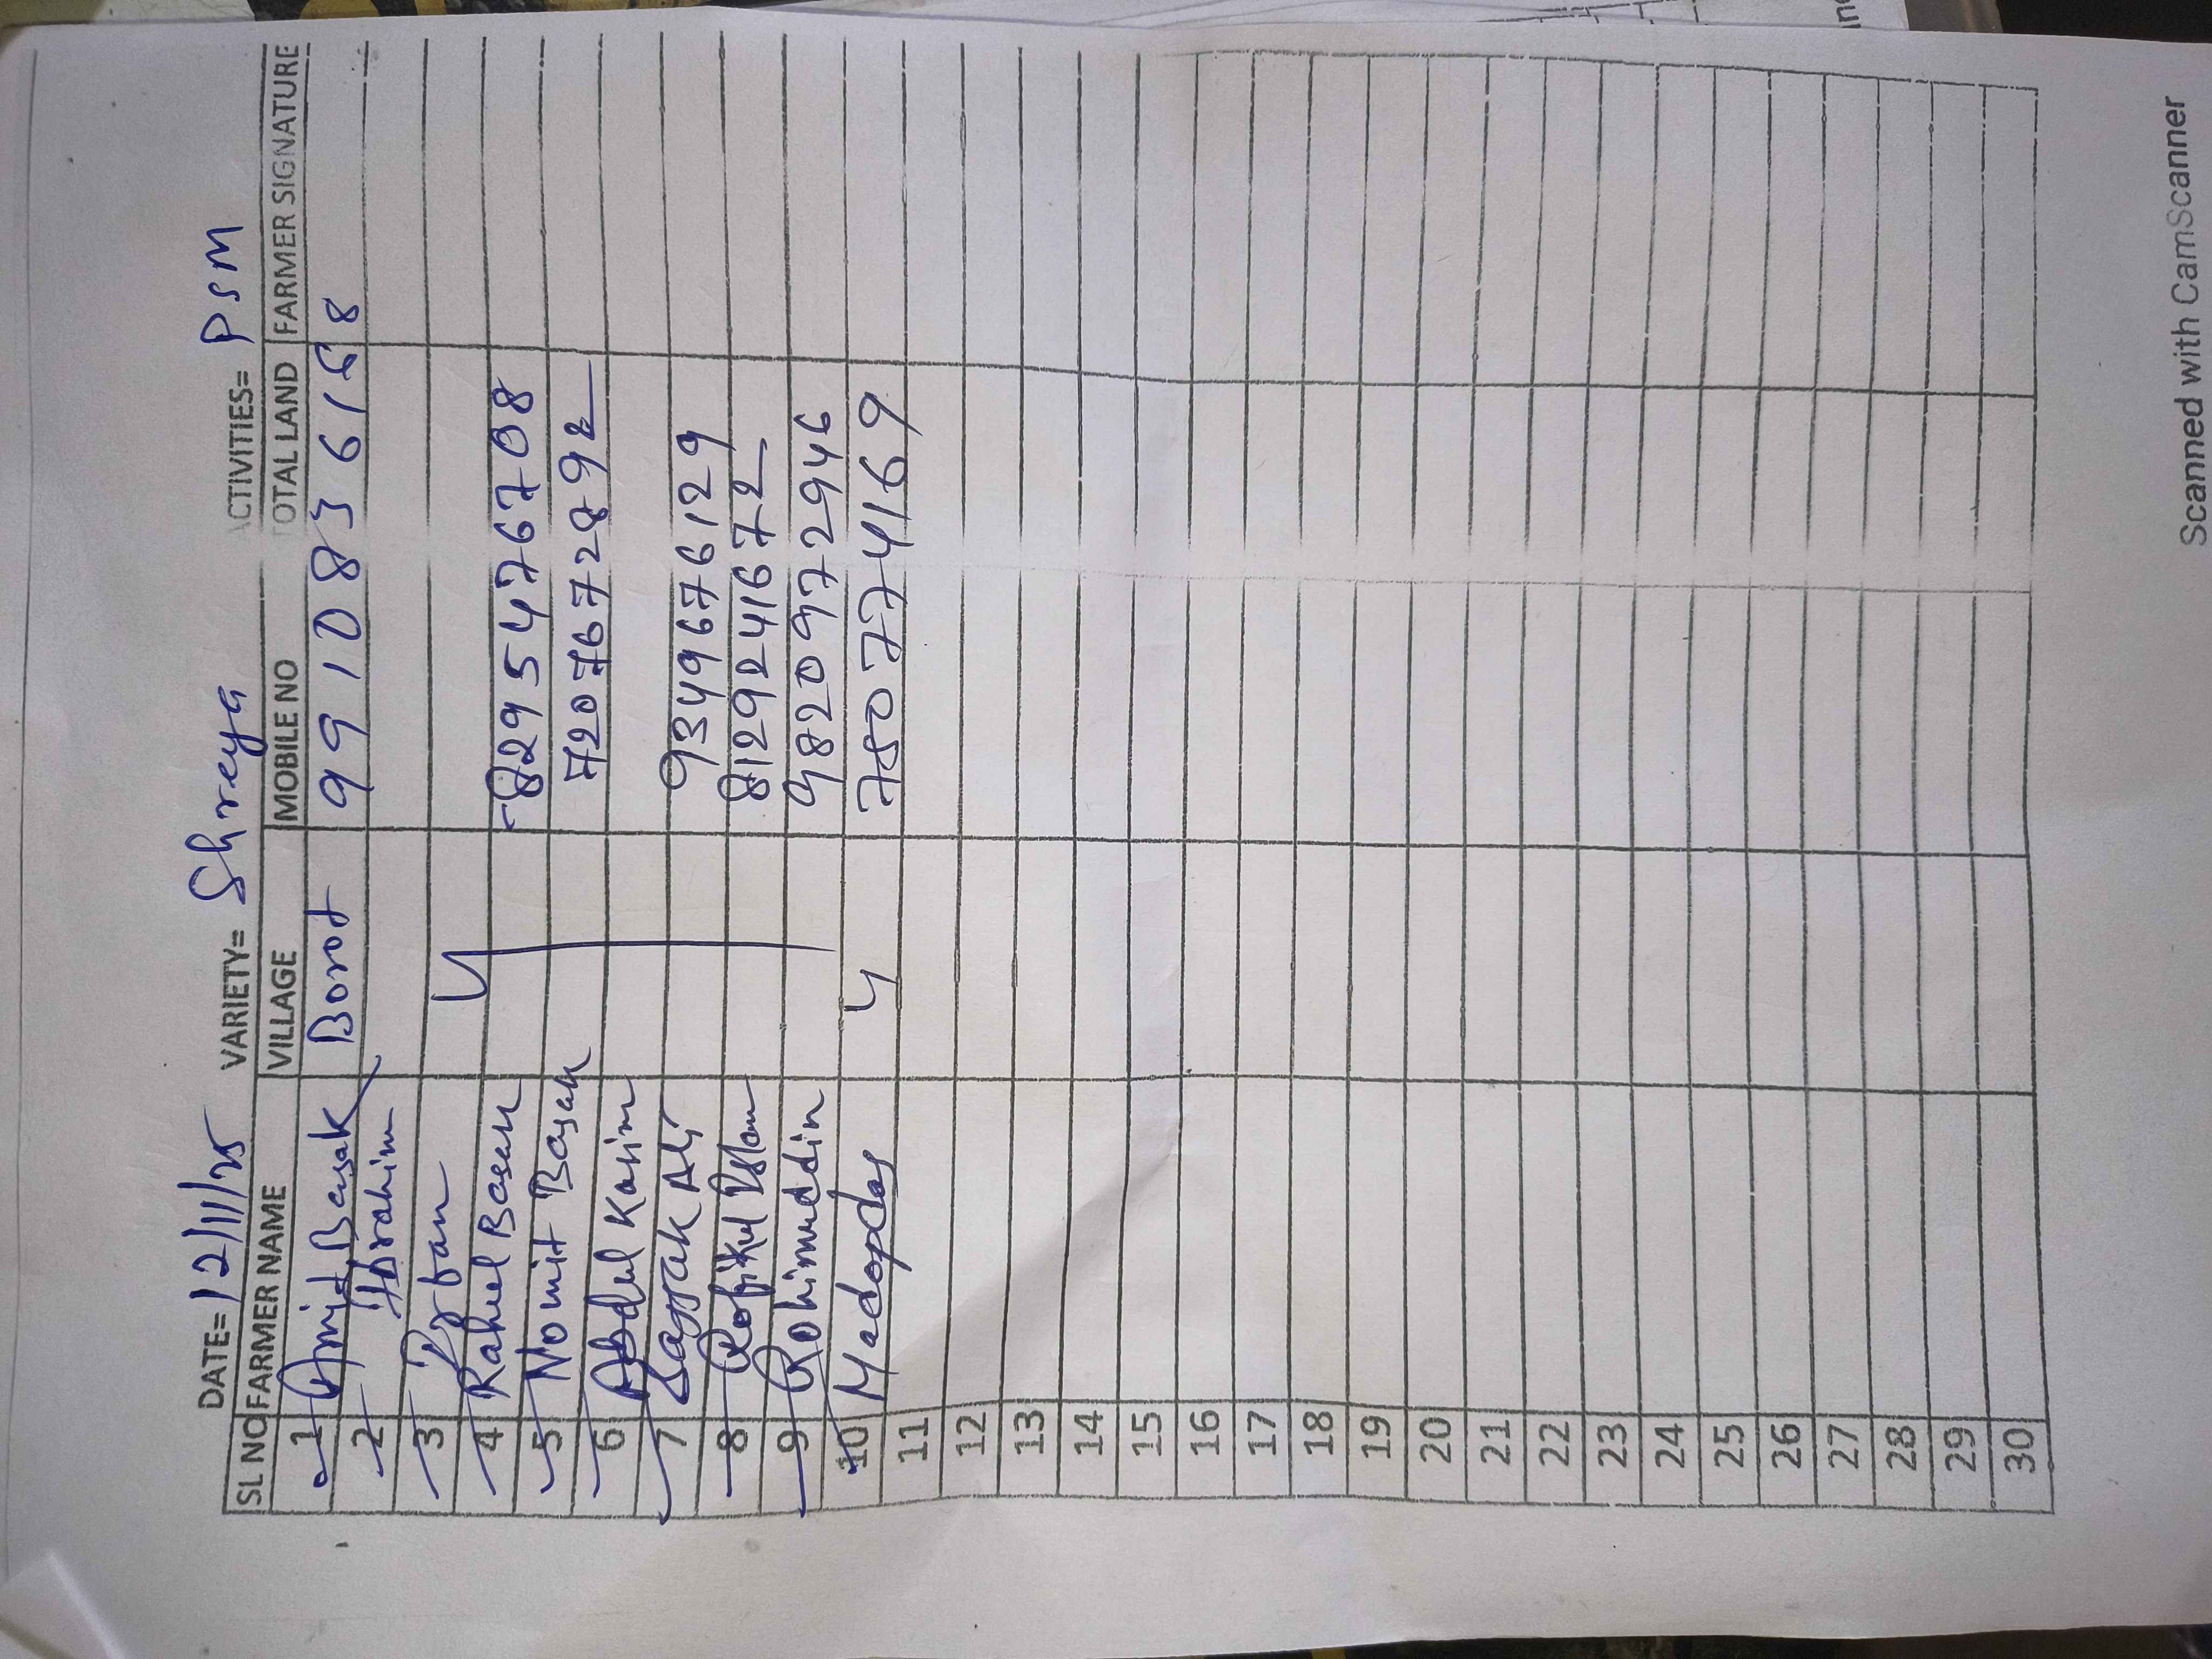 DATE= 12/11/25 VARIETY= Shreya ACTIVITIES= PSM
SL NO FARMER NAME VILLAGE MOBILE NO TOTAL LAND FARMER SIGNATURE
1 Amit Basak Borot 9910836168
2 Ibrahim
3
4 Rahul Basak 8295476708
5 Nomit Basak 7207672892
6 Abdul Karim
7 Sayyak Ali 9349676129
8 Rofikul Islam 8129241672
9 Rohimuddin 9820972946
10 Madop das 7507774169
11
12
13
14
15
16
17
18
19
20
21
22
23
24
25
26
27
28
29
30
Scanned with CamScanner